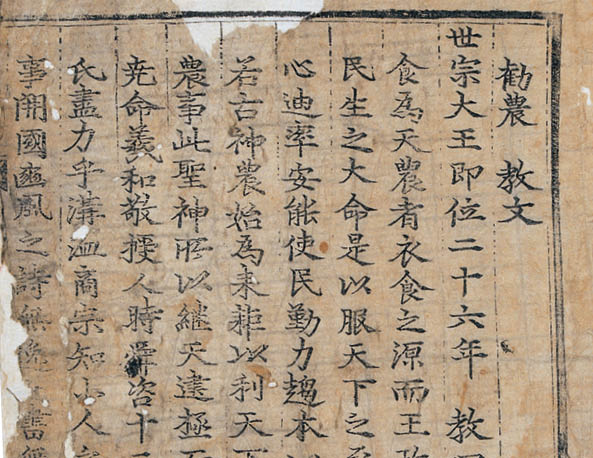 勸農 教文
世宗大王即位二十六年 教
食爲天農者衣食之源而王政
民生之大命是以服天下之
心迪率安能使民勤力趨本
若古神農始爲耒耟以利天下
農事此聖神所以繼天建極
堯命羲和敬授人時舜咨十二
氏盡力乎溝洫商宗知小人
事開國豳風之詩無逸之書